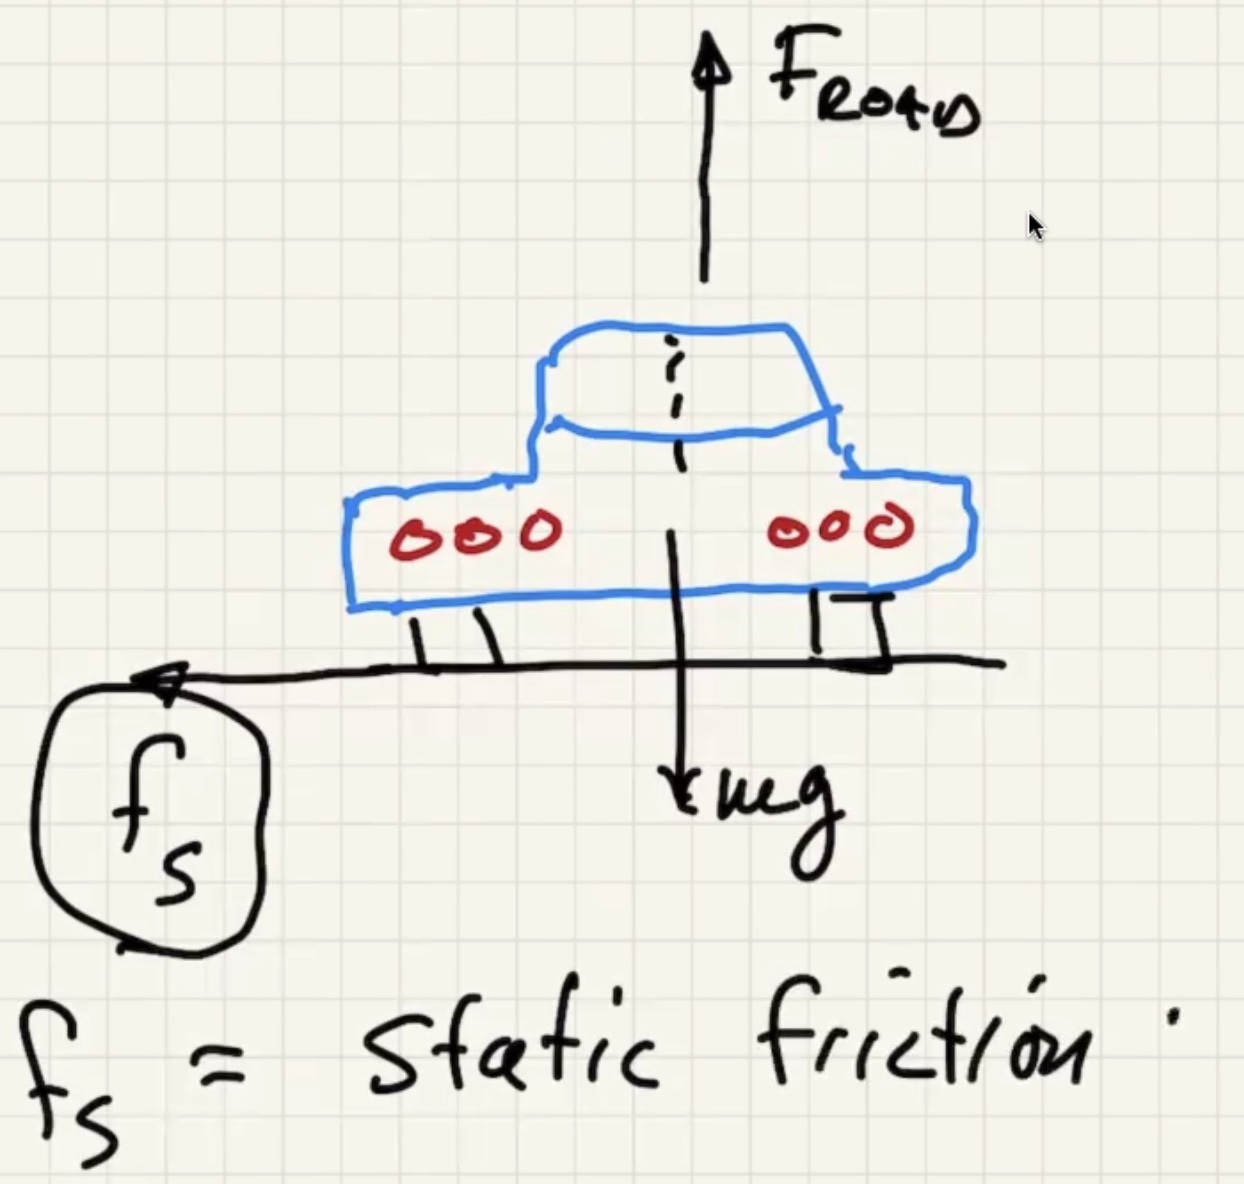 F ROAD
mg
f s
f s = static friction